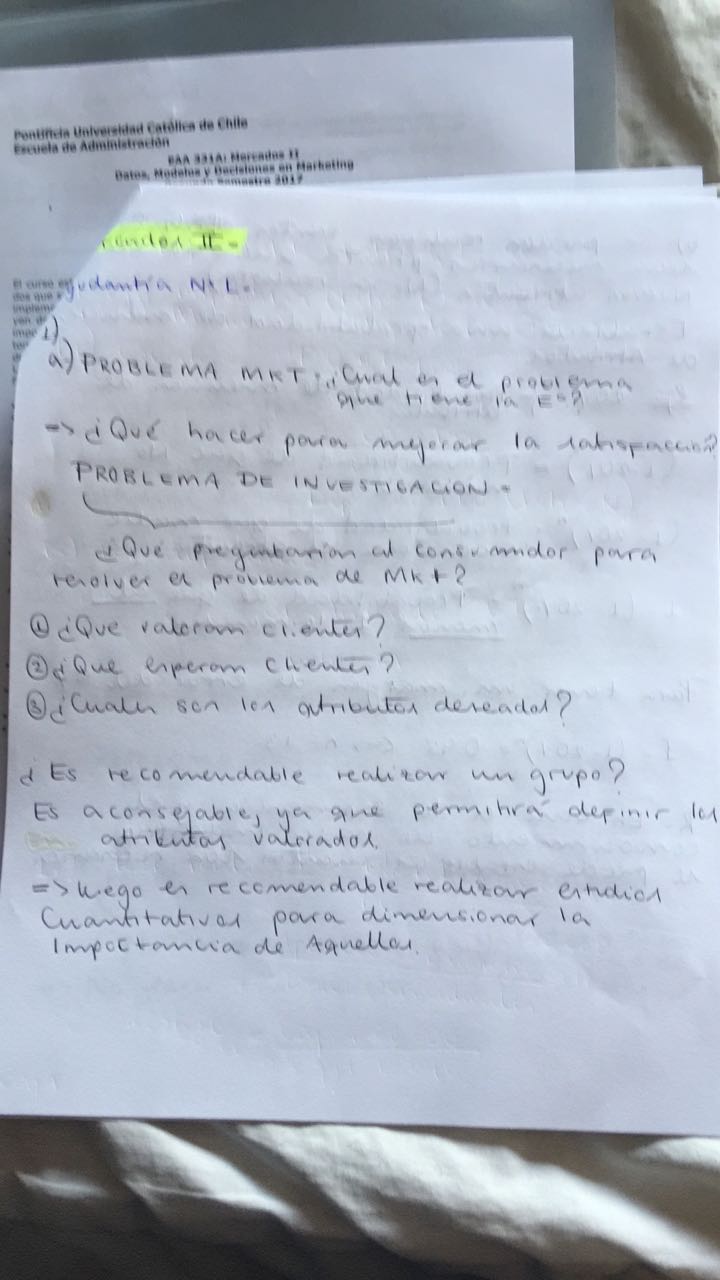 Pontificia Universidad Católica de Chile
Escuela de Administración
EAA 331A: Mercados II
Datos, Modelos y Decisiones en Marketing
Semestre 2017
El curso
dos que
cados II.
yudantía N°1.
1)
a) PROBLEMA MKT: ¿Cual es el problema
que tiene la E°?
=> ¿Qué hacer para mejorar la satisfacción?
PROBLEMA DE INVESTIGACION.
¿Que preguntarian al consumidor para
resolver el problema de Mkt?
① ¿Que valoram clientes?
② ¿Que esperam clientes?
③ ¿Cuales son los atributos deseados?
¿Es recomendable realizar un grupo?
Es aconsejable, ya que permitirá definir los
atributos valorados.
=> Luego es recomendable realizar estudios
Cuantitativos para dimensionar la
Importancia de Aquellos.